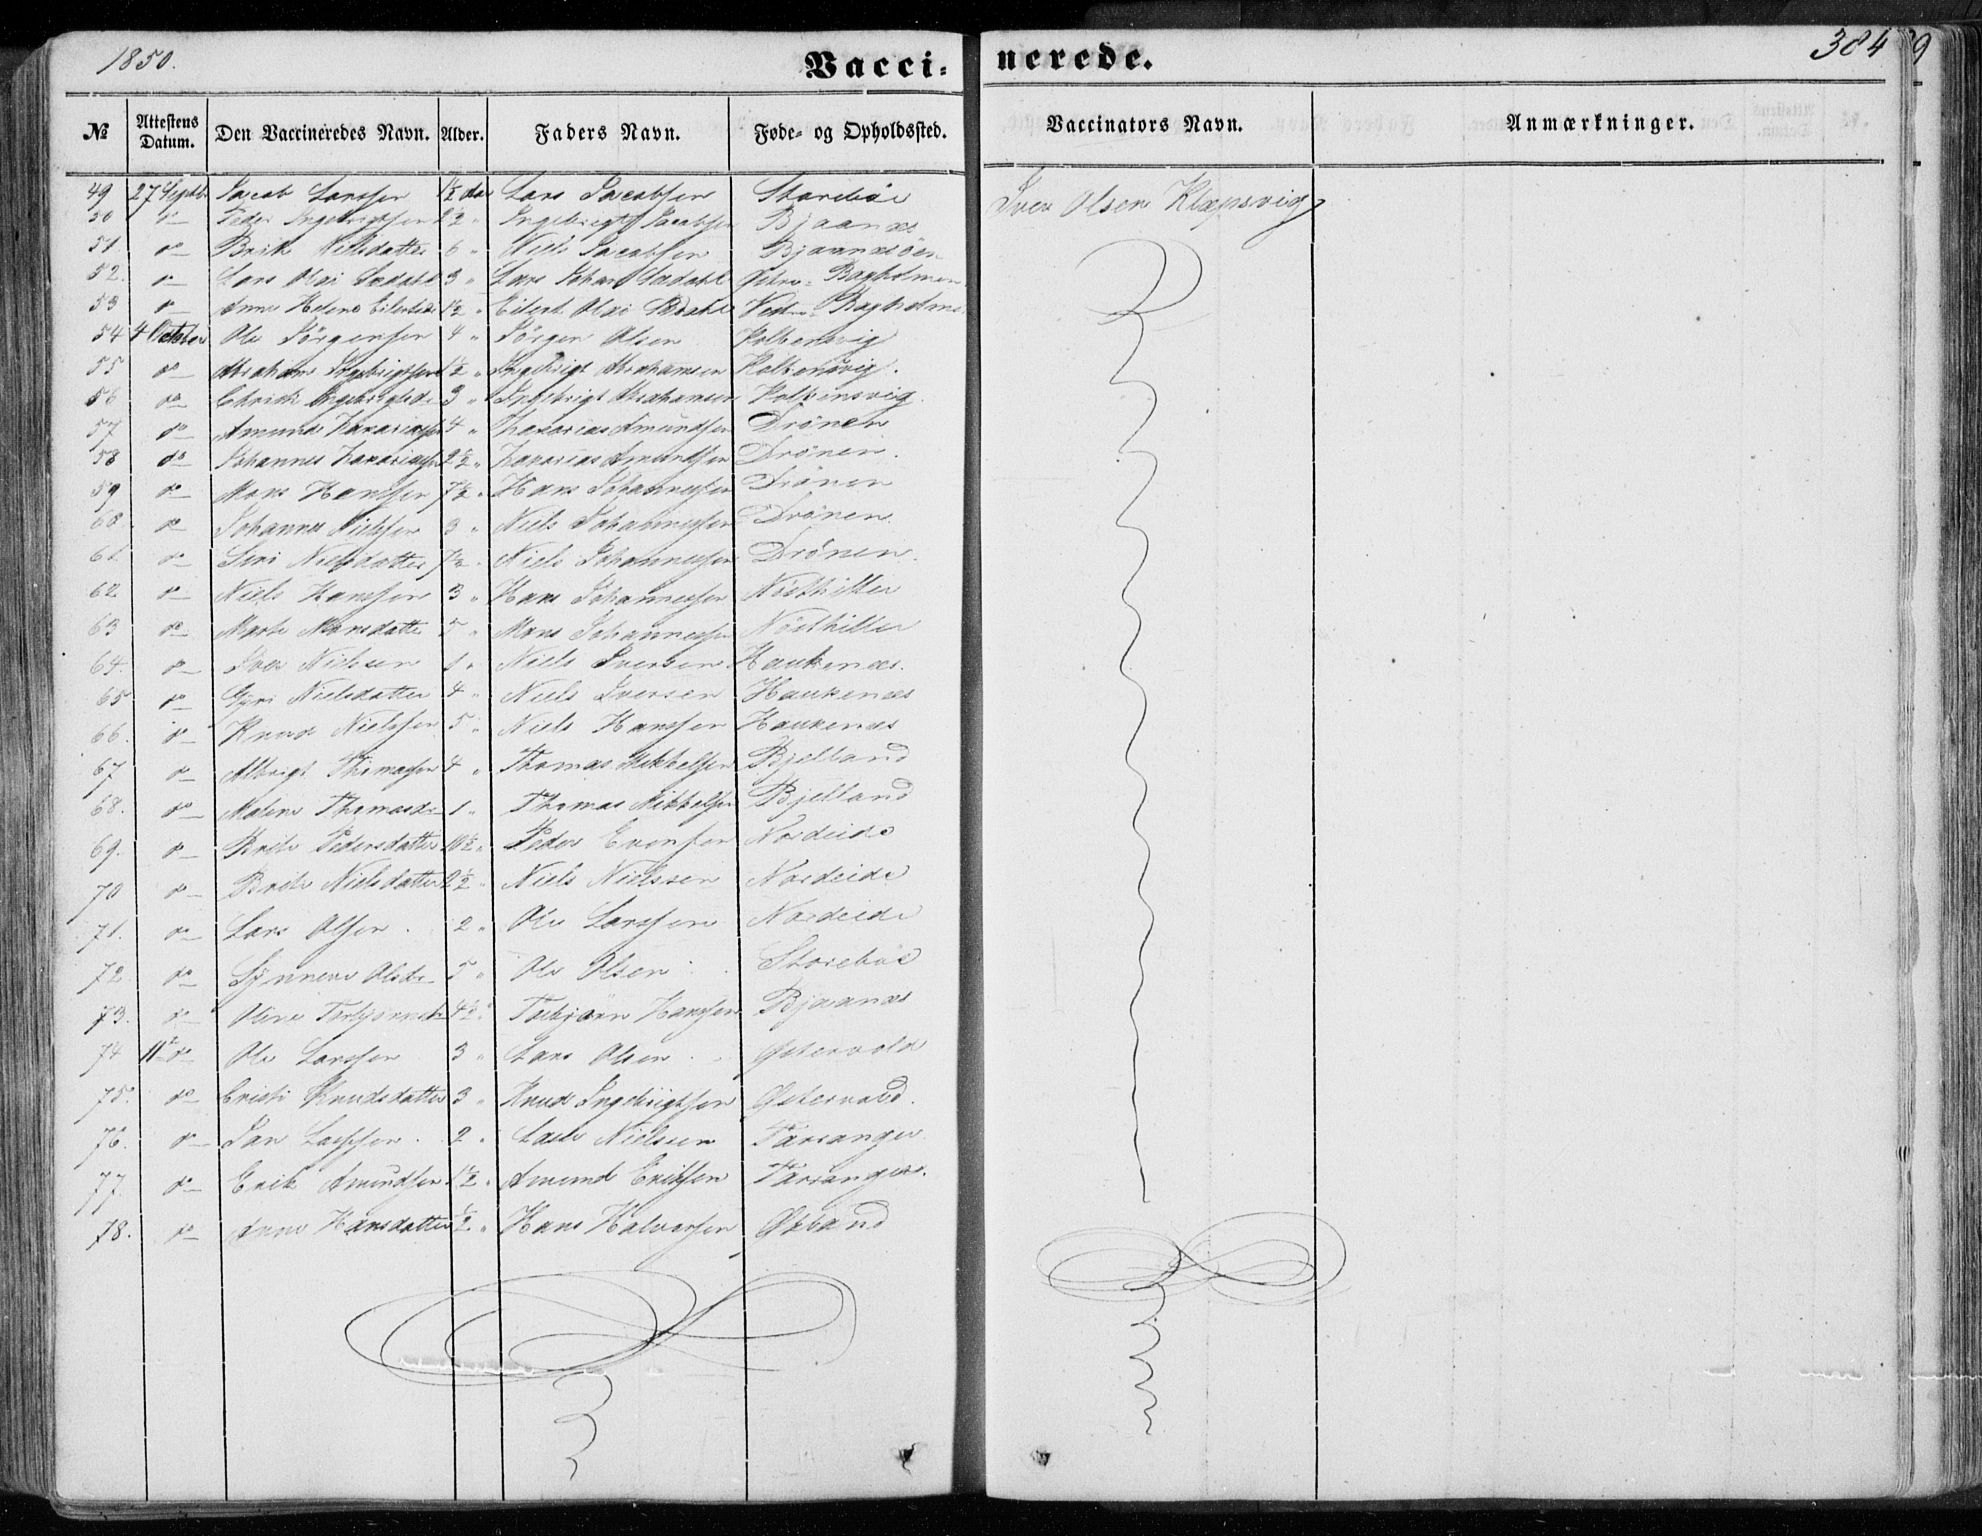 1850.
Vacci- nerede.
384
9
№ Attestens Datum. Den Vaccineredes Navn. Alder. Faders Navn. Føde- og Opholdssted. Vaccinators Navn. Anmærkninger.
49 27 Septbr Jacob Larssen 1½ Aar Lars Jacobsen Storebøe Iver Olsen Klepsvig
50 do Peder Ingebrigtsen 2½ " Ingebrigt Jacobsen Bjaanæs
51 do Brith Nielsdatter 6 " Niels Jacobsen Bjaanæsöen
52. do Lars Olai 3 " Lars Johan Østre Bagholmen
53 do Anne Helene Eilertsdr 1½ " Eilert Olai Vestre Bagholmen
54 4 October Ole Jörgensen 4 " Jörgen Olsen Kolbensvig
55 do Abraham Ingebrigtsen 1½ " Ingebrigt Abrahamsen Kolbensvig.
56 do Christi Ingebrigtsd. 3 " Ingebrigt Abrahamsen Kolbensvig
57 do Amund Zakariassen 4 " Zakarias Amundsen Drönen
58 do Johannes Zakariassen 2½ " Zakarias Amundsen Drönen.
59 do Mons Hanssen 7½ " Hans Johannessen Drönen
60. do Johannes Nielssen 3 " Niels Johannessen Drönen
61. do Siri Nielsdatter Niels Johannessen Drönen.
62. do Niels Hanssen 3 " Hans Johannessen Nösthiller
63 do Marte Monsdatter 5 " Mons Johannessen Nösthiller
64. do Iver Nielsen 1 " Niels Iversen Haukenæs.
65 do Gjøri Nielsdatter 4 " Niels Iversen Haukenæs
66. do Knud Nielssen 5 " Niels Hanssen Haukenæs
67 do Albrigt Thomassen 4 " Thomas Mikkelsen Bjelland
68. do Malene Thomasdr 1 " Thomas Mikkelsen Bjelland
69. do Brite Pedersdatter 10½ " Peder Evensen Nordeide
70 do Brite Nielsdatter 2½ " Niels Nielssen Nordeide
71. do Lars Olsen. 2 " Ole Larssen Nordeide
72. do Synneve Olsdr 5 " Ole Olsen Storebøe
73. do Oline Torbjörnsdr 4½ " Torbjörn Hanssen Bjaanæs
74 11te do Ole Larssen 3 " Lars Olsen Østervold
75. do Cristi Knudsdatter 3 " Knud Ingebrigtsen Østervold.
76. do Jan Lassessen. 2 " Lasse Nielssen Tarranger
77. do Erik Amundsen 1½ " Amund Eriksen Tarranger.
78. do Anne Hansdatter ½ " Hans Halvorsen Økland